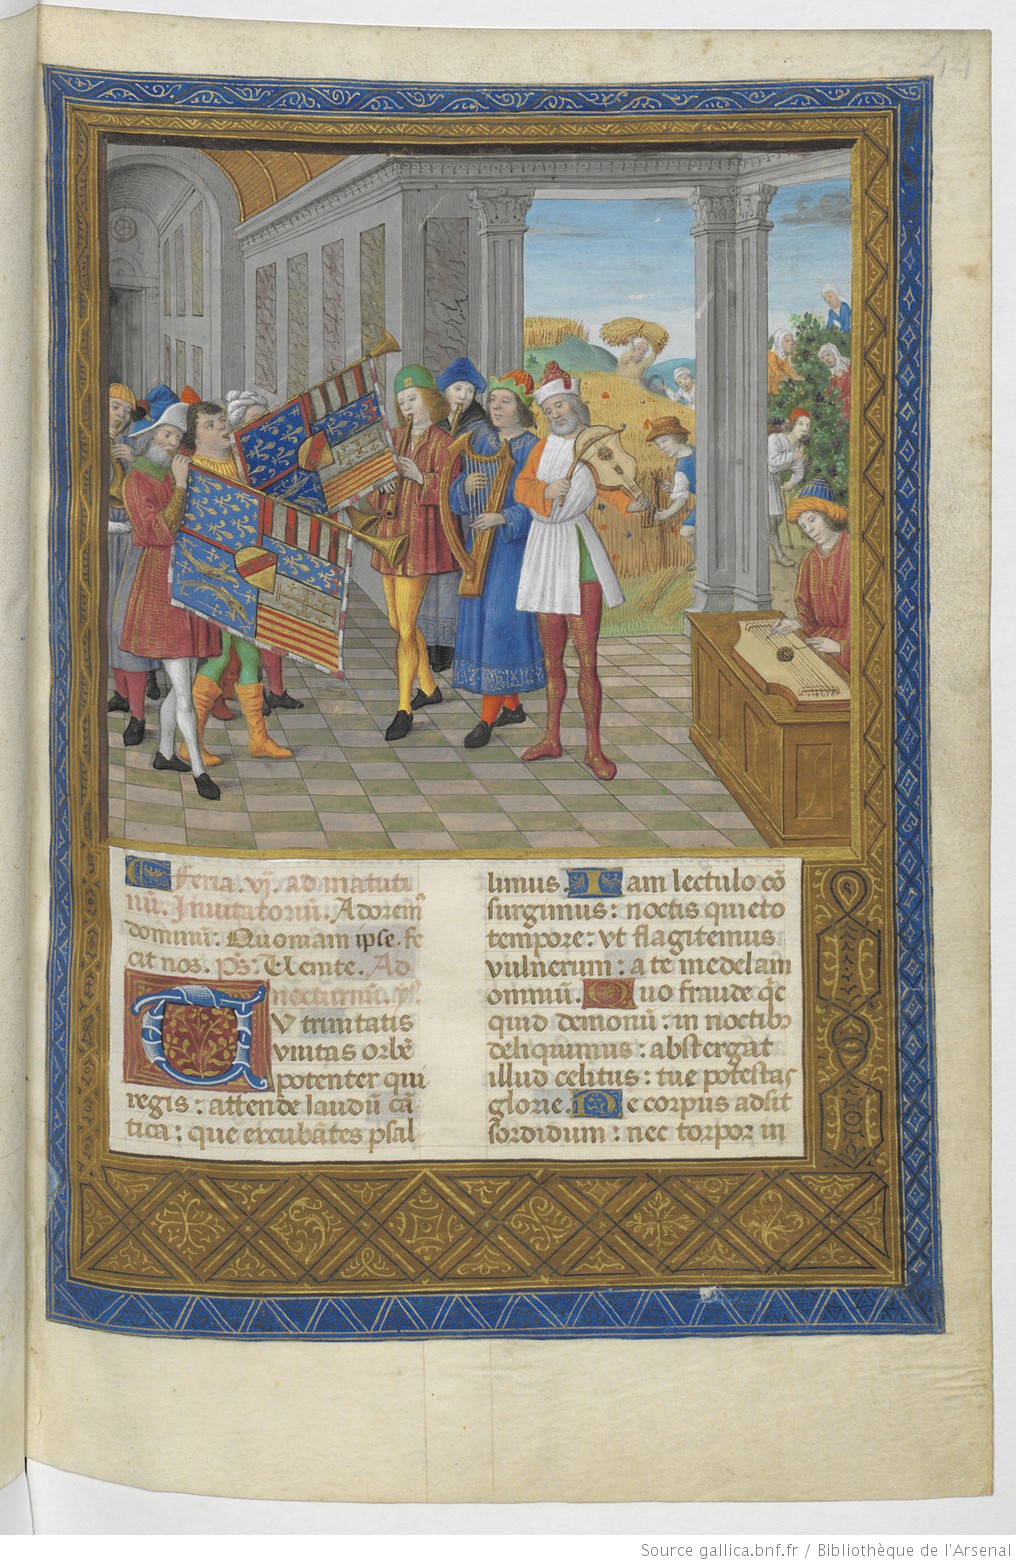 44
Feria. vj. ad matuti
nū. Inuitatoriū. Adorem⁹
dominū: Quoniam ipse. fe
cit nos. ps̄. Uenite. Ad
nocturnū.
TV trinitatis
vnitas orbē
potenter qui
regis: attende laudū cā
tica: que excubātes psal
limus. Iam lectulo cō
surgimus: noctis quieto
tempore: vt flagitemus
vulnerum: a te medelam
omniū. Quo fraude q̄c
quid demonū: in noctib⁹
deliquimus: abstergat
illud celitus: tue potestas
glorie. Ne corpus adsit
sordidum: nec torpor in
Source gallica.bnf.fr / Bibliothèque de l'Arsenal